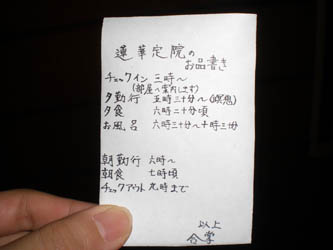 蓮華定院の
お品書き
チェックイン 三時〜
(部屋へ案内します)
夕勤行 五時三十分〜(瞑想)
夕食 六時二十分頃
お風呂 六時三十分〜十時三十分
朝勤行 六時〜
朝食 七時頃
チェックアウト 九時まで
以上
合掌